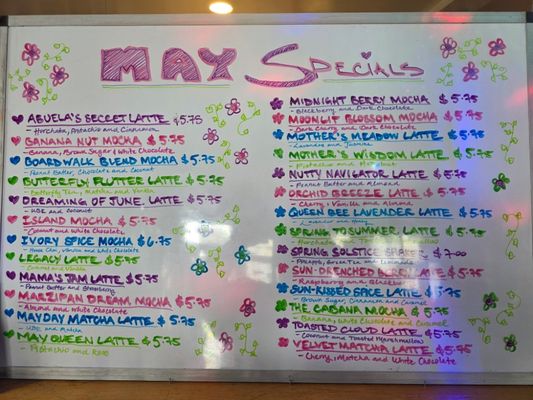 MAY SPECIALS
ABUELA'S SECCET LATTE $5.75
- Horchata, Pistachio and Cinnamon
BANANA NUT MOCHA $5.75
- Banana, Brown Sugar & White Chocolate
BOARDWALK BLEND MOCHA $5.75
- Peanut Butter, Chocolate and Coconut
BUTTERFLY FLUTTER LATTE $5.75
- Butterfly Tea, Matcha and Vanilla
DREAMING OF JUNE LATTE $5.75
- UBE and Coconut
ISLAND MOCHA $5.75
- Coconut and White Chocolate
IVORY SPICE MOCHA $6.75
- House Chai, Vanilla and White Chocolate
LEGACY LATTE $5.75
- Caramel and Vanilla
MAMA'S JAM LATTE $5.75
- Peanut Butter and Strawberry
MARZIPAN DREAM MOCHA $5.75
- Almond and White Chocolate
MAYDAY MATCHA LATTE $5.75
- UBE and Matcha
MAY QUEEN LATTE $5.75
- Pistachio and Rose
MIDNIGHT BERRY MOCHA $5.75
- Blackberry and Dark Chocolate
MOONLIT BLOSSOM MOCHA $5.75
- Dark Cherry and Dark Chocolate
MOTHER'S MEADOW LATTE $5.75
- Lavender and Jasmine
MOTHER'S WISDOM LATTE $5.75
- Pistachio and
NUTTY NAVIGATOR LATTE $5.75
- Peanut Butter and Almond
ORCHID BREEZE LATTE $5.75
- Cherry, Vanilla and Almond
QUEEN BEE LAVENDER LATTE $5.75
- Lavender and Honey
SPRING TO SUMMER LATTE $5.75
- Horchata,
SPRING SOLSTICE SHAKER $7.00
- Pineapple, Green Tea and Lemonade
SUN-DRENCHED BERRY LATTE $5.75
- Raspberry and Blueberry
SUN-KISSED SPICE LATTE $5.75
- Brown Sugar, Cinnamon and Caramel
THE CABANA MOCHA $5.75
- Banana, White Chocolate and Caramel
TOASTED CLOUD LATTE $5.75
- Coconut and Toasted Marshmallow
VELVET MATCHA LATTE $5.75
- Cherry, Matcha and White Chocolate